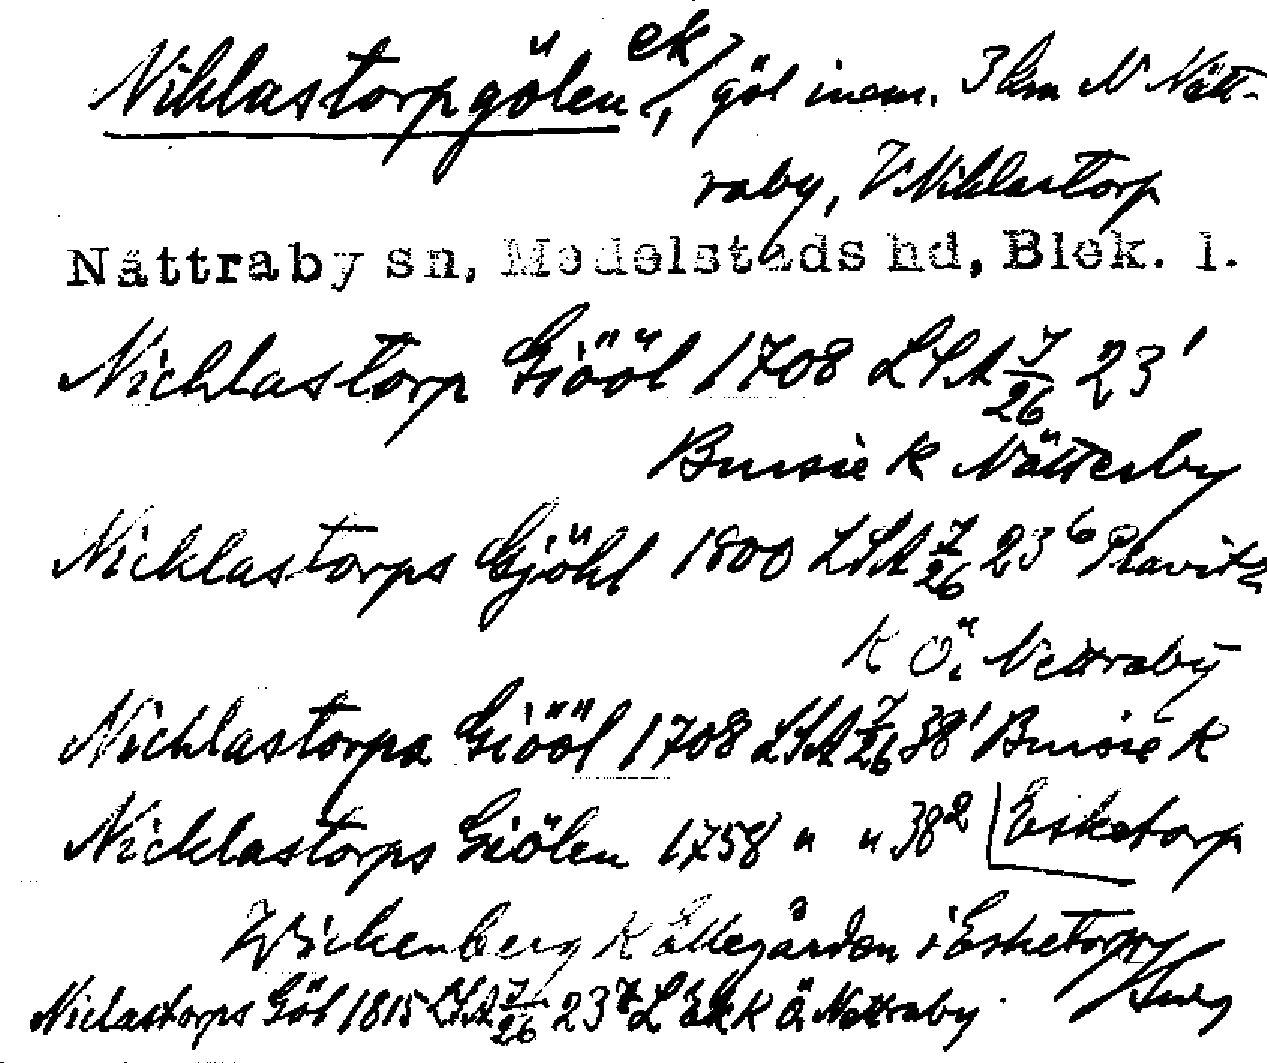 Niklastorpgölen ek, göl inem. 3 km N Nätt-
raby, V Niklastorp
Nättraby sn, Medelstads hd, Blek. l.
Nichlastorp Giööl 1708 LSA 7/26 23¹
Bursie K Nätterby
Nicklastorps Gjöhl 1800 LSA 7/26 23⁶ Plavitz
K Ö. Nettraby
Nichlastorps Giööl 1708 LSA 7/26 38¹ Bursie K
Nicklastorps Giölen 1758 " " 38² Esketorp
Wickenberg K Åttegården i Esketorp
Niclastorps Göl 1815 LSA 7/26 23⁷ L Ek K Ö. Nettraby